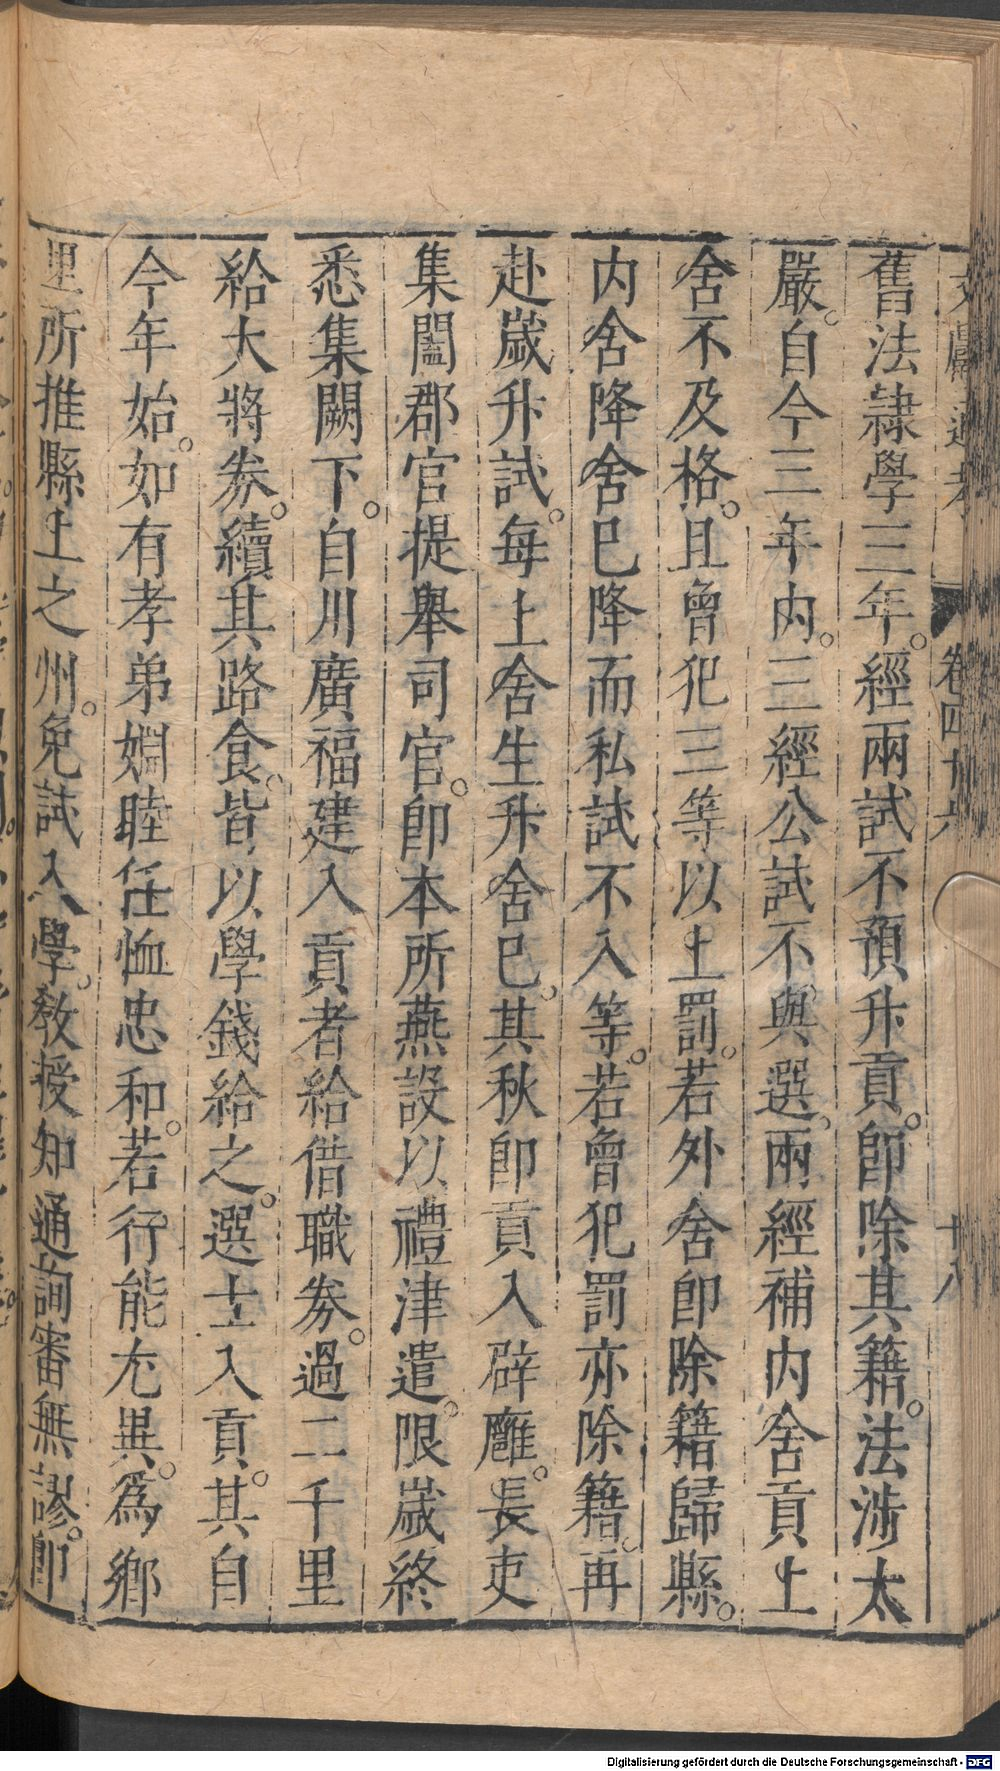 文獻通考 卷四十六 十八
舊法隷學三年。經兩試不預升貢。卽除其籍。法涉太
嚴。自今三年內。三經公試不與選。兩經補內舍貢上
舍不及格。且曾犯三等以上罰。若外舍卽除籍歸縣。
內舍降舍已降而私試不入等。若曾犯罰亦除籍。再
赴歲升試。每上舍生升舍已。其秋卽貢入辟廱。長吏
集闔郡官提舉司官。卽本所燕設以禮津遣。限歲終
悉集闕下。自川廣福建入貢者給借職券。過二千里
給大將券。續其路食。皆以學錢給之。選士入貢。其自
今年始。如有孝弟婣睦任恤忠和。若行能尤異。爲鄉
里所推縣上之州。免試入學。教授知通詢審無謬。卽
Digitalisierung gefördert durch die Deutsche Forschungsgemeinschaft - DFG